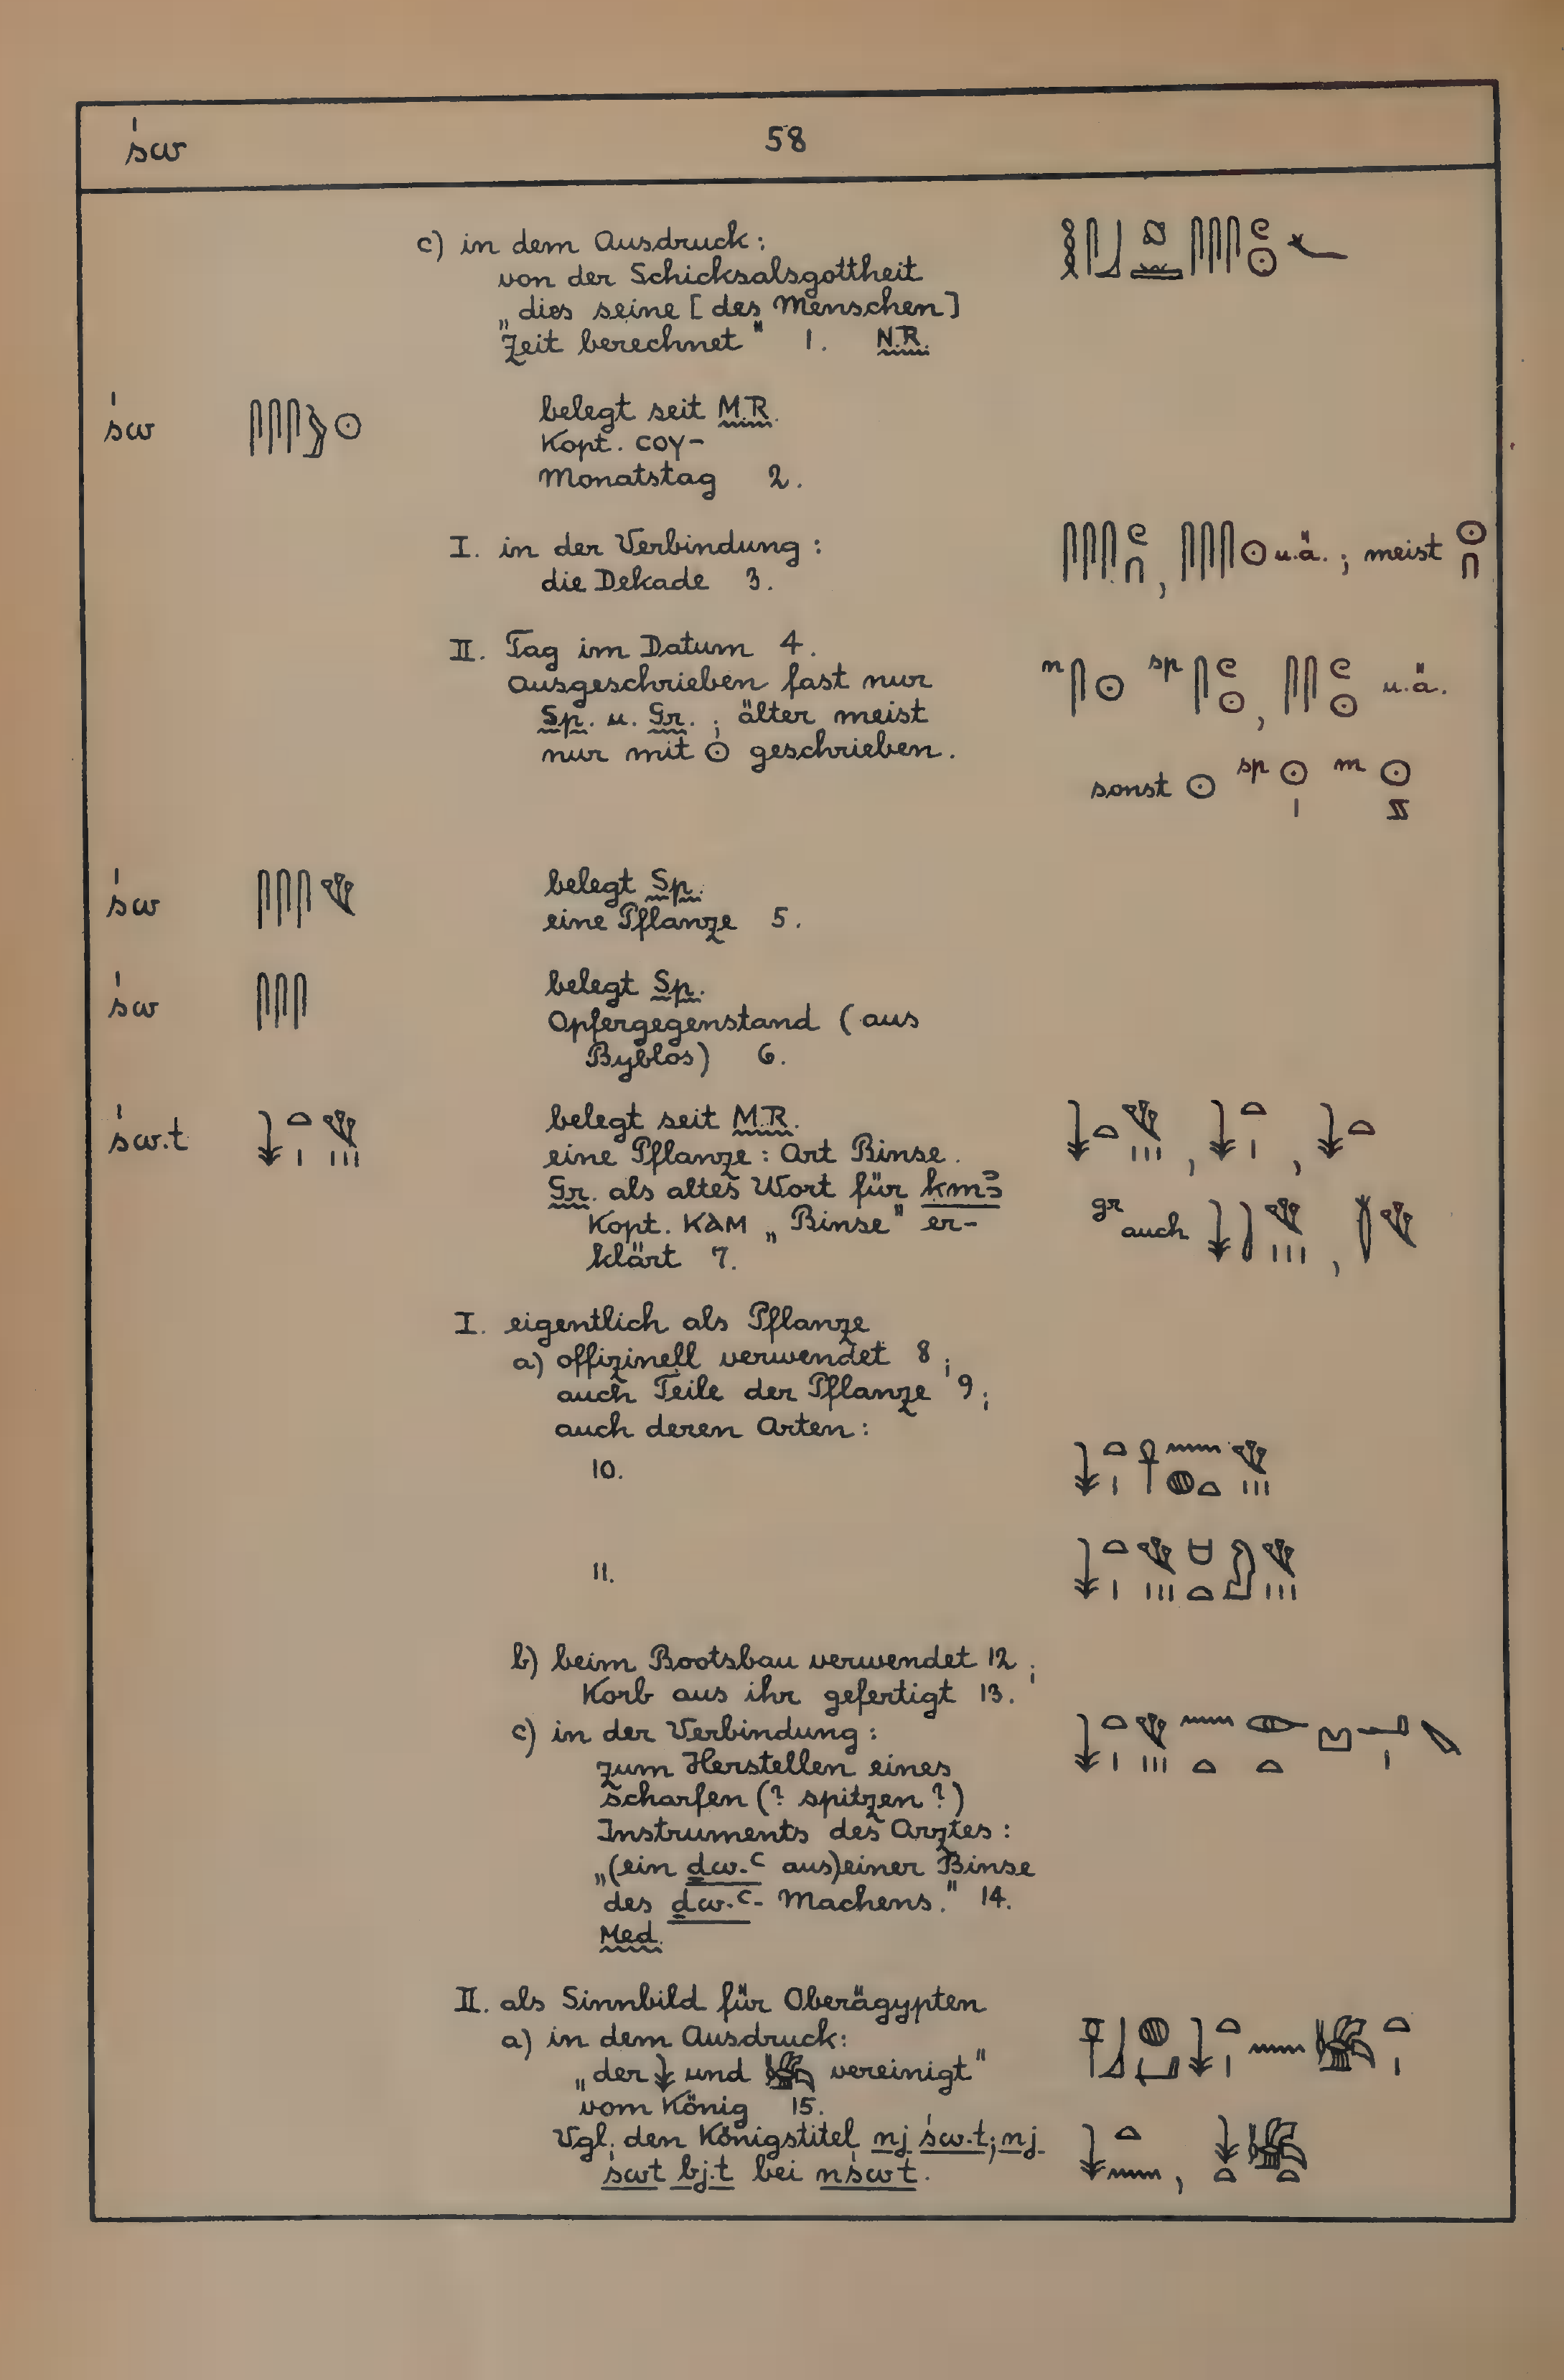 św 58
c) in dem Ausdruck:
von der Schicksalsgottheit
„dies seine [des Menschen]
Zeit berechnet" 1. N.R.
św belegt seit M.R.
Kopt. ⲥⲟⲩ-
Monatstag 2.
I. in der Verbindung: u.ä.; meist
die Dekade 3.
II. Tag im Datum 4.
ausgeschrieben fast nur n sp u.ä.
Sp. u. Gr.; älter meist
nur mit 𓇳 geschrieben.
sonst 𓇳 sp 𓇳𓏤 m 𓇳
św belegt Sp.
eine Pflanze 5.
św belegt Sp.
Opfergegenstand (aus
Byblos) 6.
św.t 𓇓𓏏𓏤𓆰𓏥 belegt seit M.R. 𓇓𓏏𓆰𓏥, 𓇓𓏏𓏤, 𓇓𓏏
eine Pflanze: Art Binse.
Gr. als altes Wort für kmꜣ
Kopt. ⲕⲁⲙ „Binse" er- gr auch
klärt 7.
I. eigentlich als Pflanze
a) offizinell verwendet 8;
auch Teile der Pflanze 9;
auch deren Arten:
10.
11.
b) beim Bootsbau verwendet 12;
Korb aus ihr gefertigt 13.
c) in der Verbindung:
zum Herstellen eines
scharfen (? spitzen ?)
Instruments des Arztes:
„(ein ḏw.ꜥ aus) einer Binse
des ḏw.ꜥ-Machens." 14.
Med.
II. als Sinnbild für Oberägypten
a) in dem Ausdruck:
„der 𓇓 und 𓇅 vereinigt"
vom König 15.
Vgl. den Königstitel nj św.t; nj
śwt bj.t bei nśwt.